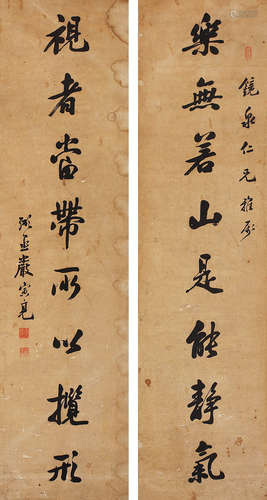 鏡泉仁兄雅屬
樂無若山是能靜氣
視者當帶所以攬形
弼丞嚴寅亮